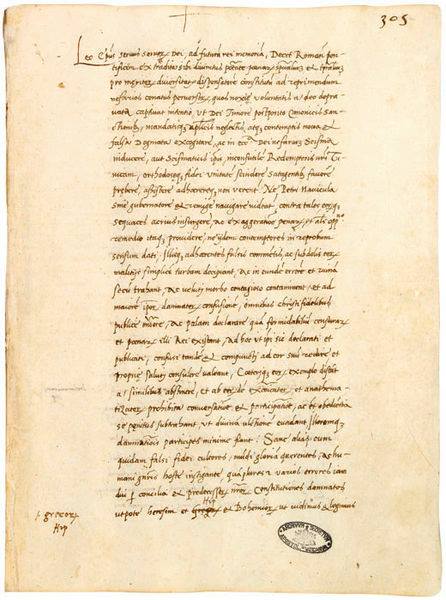 305
Leo Eps servus servor Dei, ad futuram rei memoria, Decet Romanu pon
tificem ex tradita sibi divinitus potate penar, spualium et tpralium
pro meritor diversitate dispensatore constitutu ad reprimendum
nefarios conatus perversor, quos noxie voluntatis a deo depra
vata captivat intentio, ut Dei timore postposito Canonicis san
ctionib, mandatisq aplicis neglectis, atq contemptis nova et
falsa Dogmata excogitare, ac in eccl Dei nefarium Scisma
inducere, aut Scismaticis ipis inconsutile Redemptoris nri Tu
nicam, orthodoxeq fidei unitate scindere satagentib, favore
prebere, assistere adhaerereq, non verent, Ne Petri Navicula
sine gubernatore et remige navigare videat, contra tales eorq
sequaces acrius insurgere, Ac exaggeratione penar, et als oppno
remedio itaq, providere, ne ijdem contemptores in reprobum
sensum dati, Illisq, adherentes falsis commetis, ac subdolis eor
malitijs simplice turbam decipiant, Ac in eunde errore et ruina
secu trahant, Ac veluti morbo contagioso contaminent, et ad
maiore ipor damnator confusione, omnibus christi fidelibus
publice, Ac palam declarare qua formidabiliu censurar
et penar illi Rei existant, Ad hoc ut ipsi sic declarati et
publicati, confusi tande et compuncti ad cor suu redeant et
proprie saluti consulere valeant, Ceteriq, eor, exemplo discat
a similibus abstinere, et ab eor, de excoicator, et anathema
tizator, prohibita conversatione et participatione, ac eis obedientia
se penitus subtrahant, ut divina ultione evadant illoremq,
damnationis participes minime fiant: Sane alias, cum
quidam falsi fidei cultores, mudi gloria querentes, ac hu
mani gnris hoste instigante, qua plures et varios errores iam
diu p concilia et predecessor, nror, Constitutiones damnatos
utpote heresim et grecor et Bohemor, ut vidimus et legimus
grecor